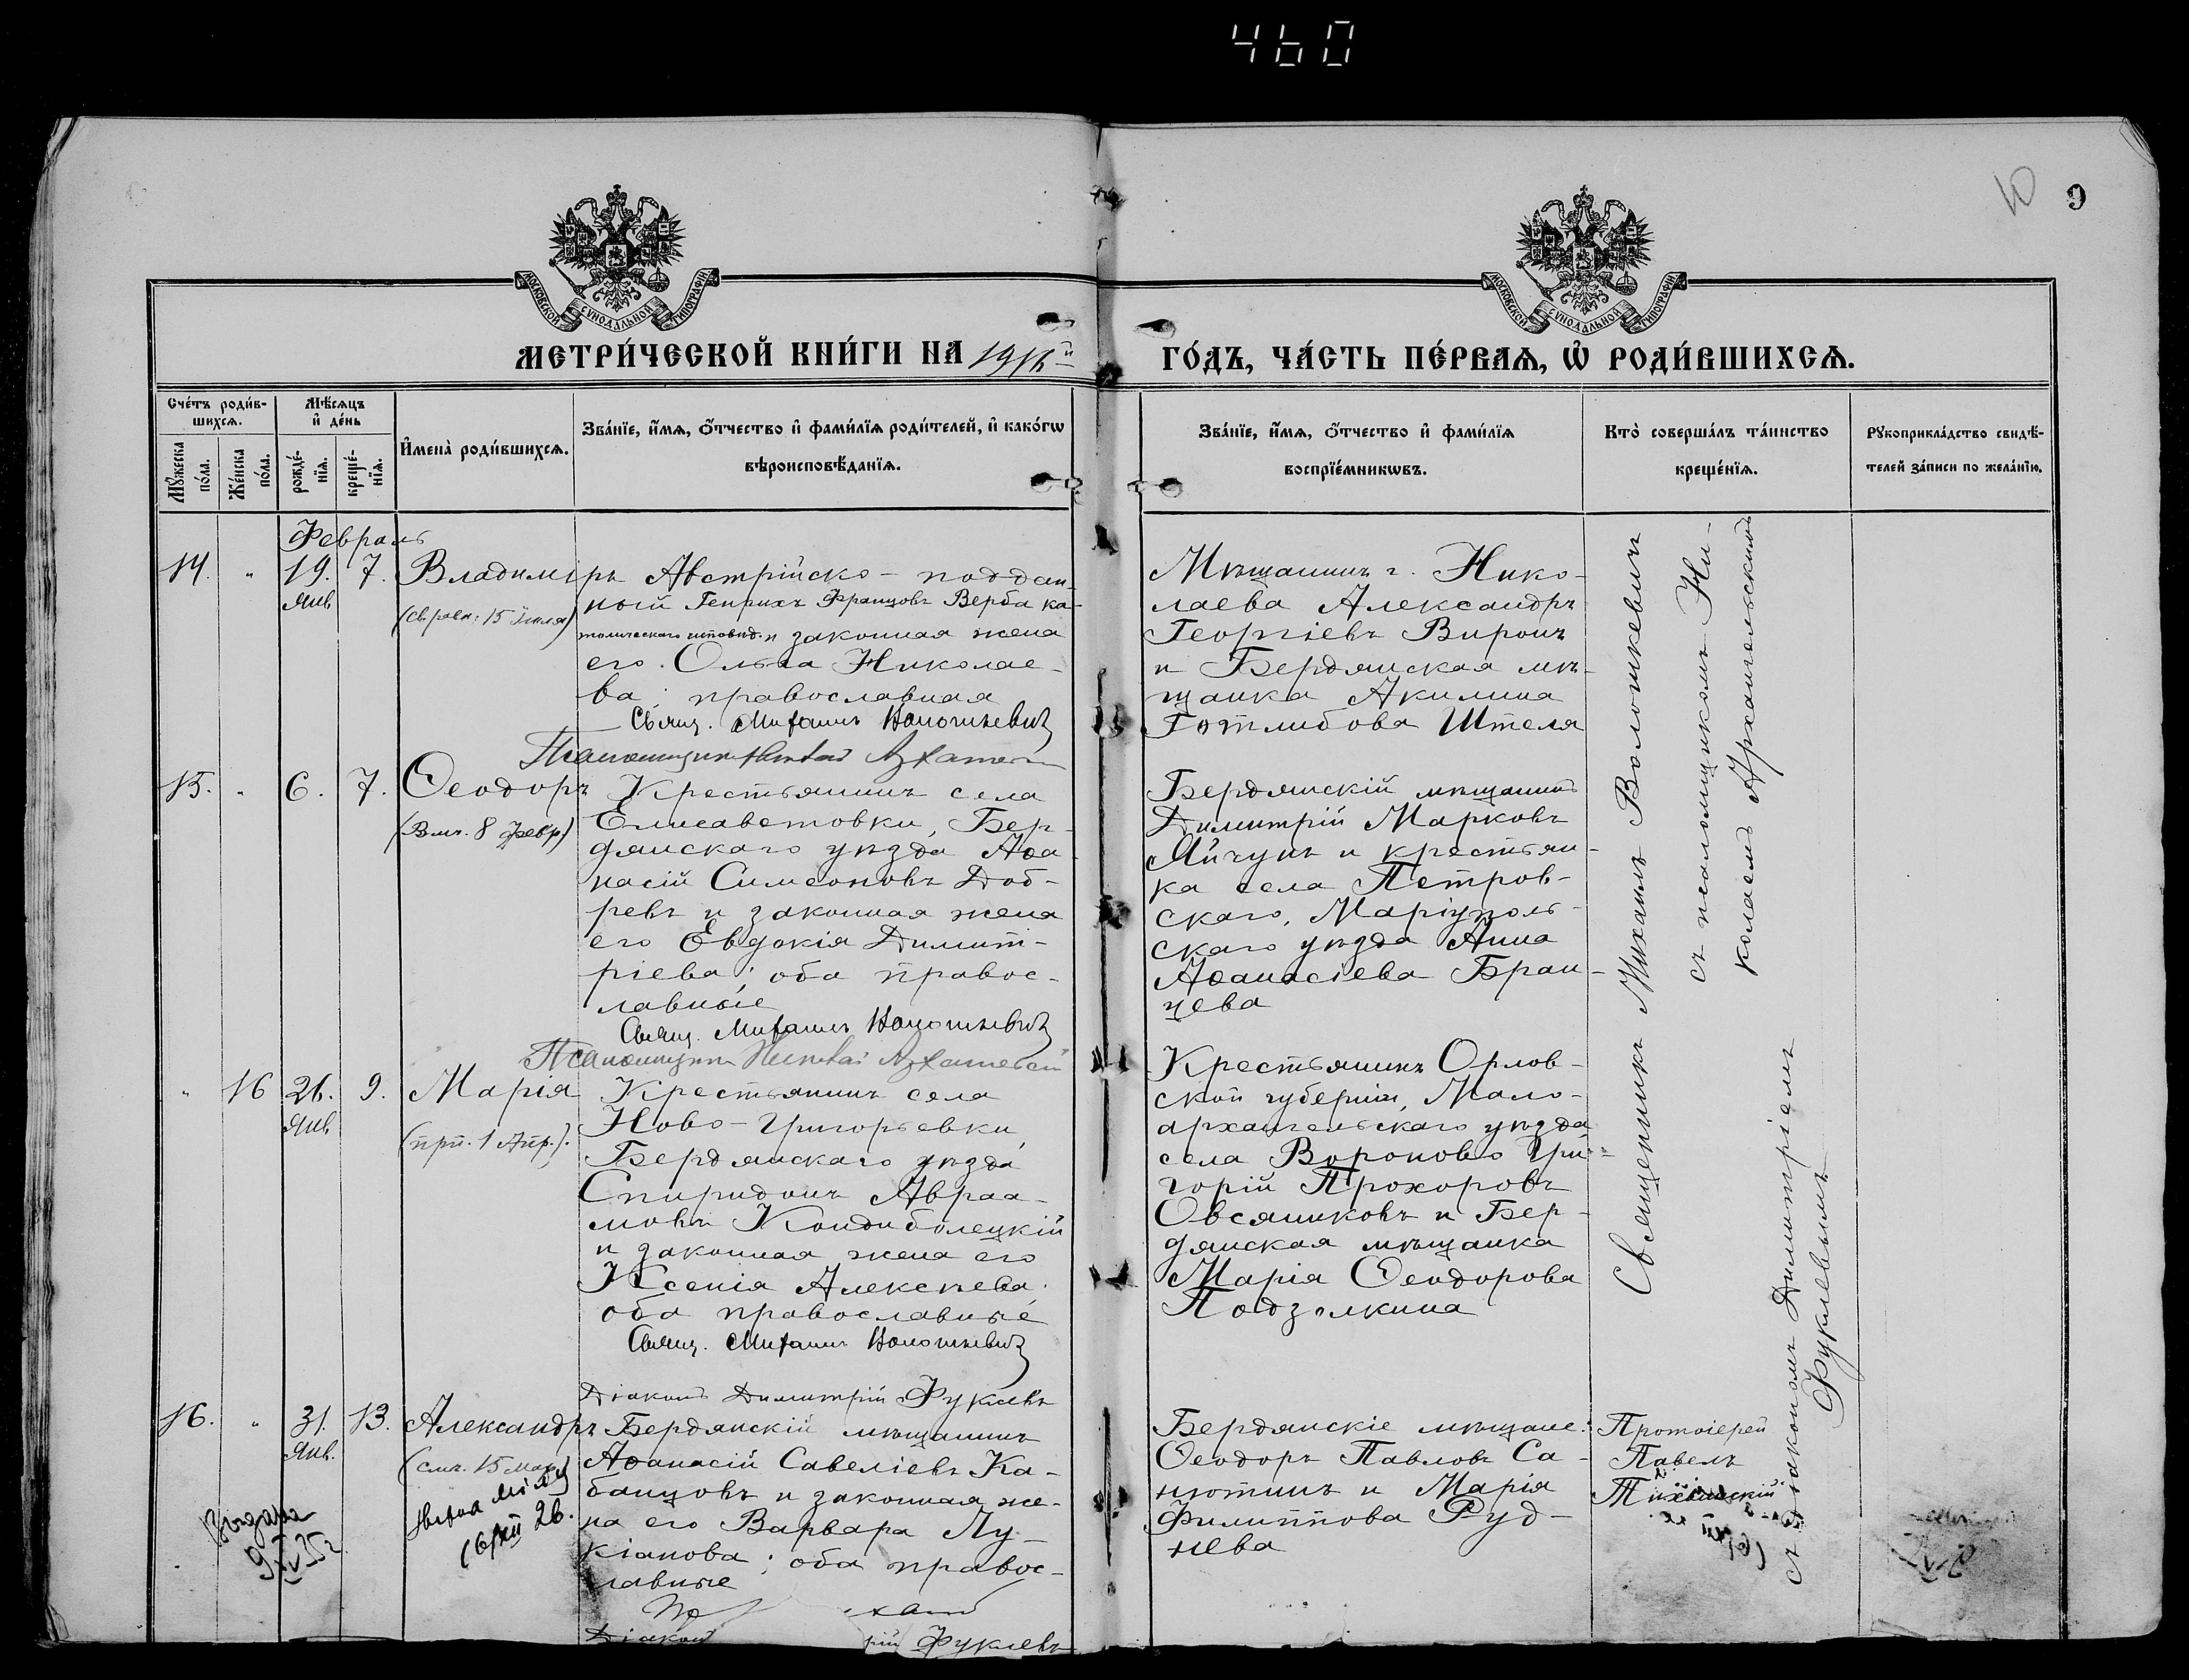 460
10
9
МОСКОВСКОЙ СѴНОДАЛЬНОЙ ТИПОГРАФІИ
МОСКОВСКОЙ СѴНОДАЛЬНОЙ ТИПОГРАФІИ
МЕТРИ́ЧЕСКОЙ КНИ́ГИ НА 1916й
ГО́ДЪ, ЧА́СТЬ ПЕ́РВАѦ, Ѡ РОДИ́ВШИХСѦ.
Сче́тъ роди́в-
шихсѧ.
Мꙋ́жеска
по́ла.
Же́нска
по́ла.
Мѣ́сѧцъ
и҆ де́нь
рожде́-
нїѧ.
креще́-
нїѧ.
И҆мена̀ роди́вшихсѧ.
Зва́нїе, и҆́мѧ, ѻ҆́тчество и҆ фами́лїѧ роди́телей, и҆ како́гѡ
вѣроисповѣ́данїѧ.
Зва́нїе, и҆́мѧ, ѻ҆́тчество и҆ фами́лїѧ
воспрїе́мникѡвъ.
Кто̀ соверша́лъ та́инство
креще́нїѧ.
Рꙋкоприкла́дство свидѣ́-
телей за́писи по жела́нїю.
Февраль
14. " 19. 7. Владиміръ
Янв
(св. равн. 15 Іюля)
Австрійско-поддан-
ный Генрихъ Францовъ Верба ка-
толическаго исповѣд. и законная жена
его Ольга Николае-
ва; православная
Свящ. Михаилъ Волошкевичъ
Псаломщикъ Николай
Мѣщанинъ г. Нико-
лаева Александръ
Георгіевъ Виронъ
и Бердянская мѣ-
щанка Акилина
Готлибова Штеля
15. " 6. 7. Ѳеодоръ
(Вмч. 8 Февр)
Крестьянинъ села
Елисаветовки, Бер-
дянскаго уѣзда Аѳа-
насій Симеоновъ Доб-
ревъ и законная жена
его Евдокія Димит-
ріева; оба правос-
лавные
Свящ. Михаилъ Волошкевичъ
Псаломщикъ Николай
Бердянскій мѣщанинъ
Димитрій Марковъ
Яйчунъ и крестьян-
ка села Петров-
скаго, Маріуполь-
скаго уѣзда Анна
Аѳанасіева Бран-
цева
" 16 26. 9. Марія
Янв.
(прп. 1 Апр.).
Крестьянинъ села
Ново-Григорьевки,
Бердянскаго уѣзда
Спиридонъ Авраа-
мовъ Кондиболецкій
и законная жена его
Ксенія Алексѣева;
оба православные
Свящ. Михаилъ Волошкевичъ
Діаконъ Димитрій Фуклевъ
Крестьянинъ Орлов-
ской губерніи, Мало-
архангельскаго уѣзда
села Вороново Гри-
горій Прохоровъ
Овсяниковъ и Бер-
дянская мѣщанка
Марія Ѳеодорова
Подзолкина
Священникъ Михаилъ Волошкевичъ
съ псаломщикомъ Ни-
колаемъ Архангельскимъ
съ діакономъ Димитріемъ
Фуклевымъ
16. " 31. 13. Александръ
Янв.
(смч. 15 Мар)
26.
Выдана
Бердянскій мѣщанинъ
Аѳанасій Савеліевъ Ка-
банцовъ и законная же-
на его Варвара Лу-
кіанова; оба правос-
лавные
Діакон рій Фуклевъ
Бердянскіе мѣщане:
Ѳеодоръ Павловъ Са-
нютинъ и Марія
Филиппова Руд-
нева
Протоіерей
Павелъ
Тихвинскій